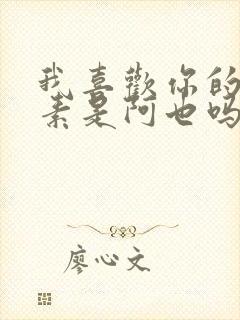 我喜歡你的
素是阿也吗
廖心文